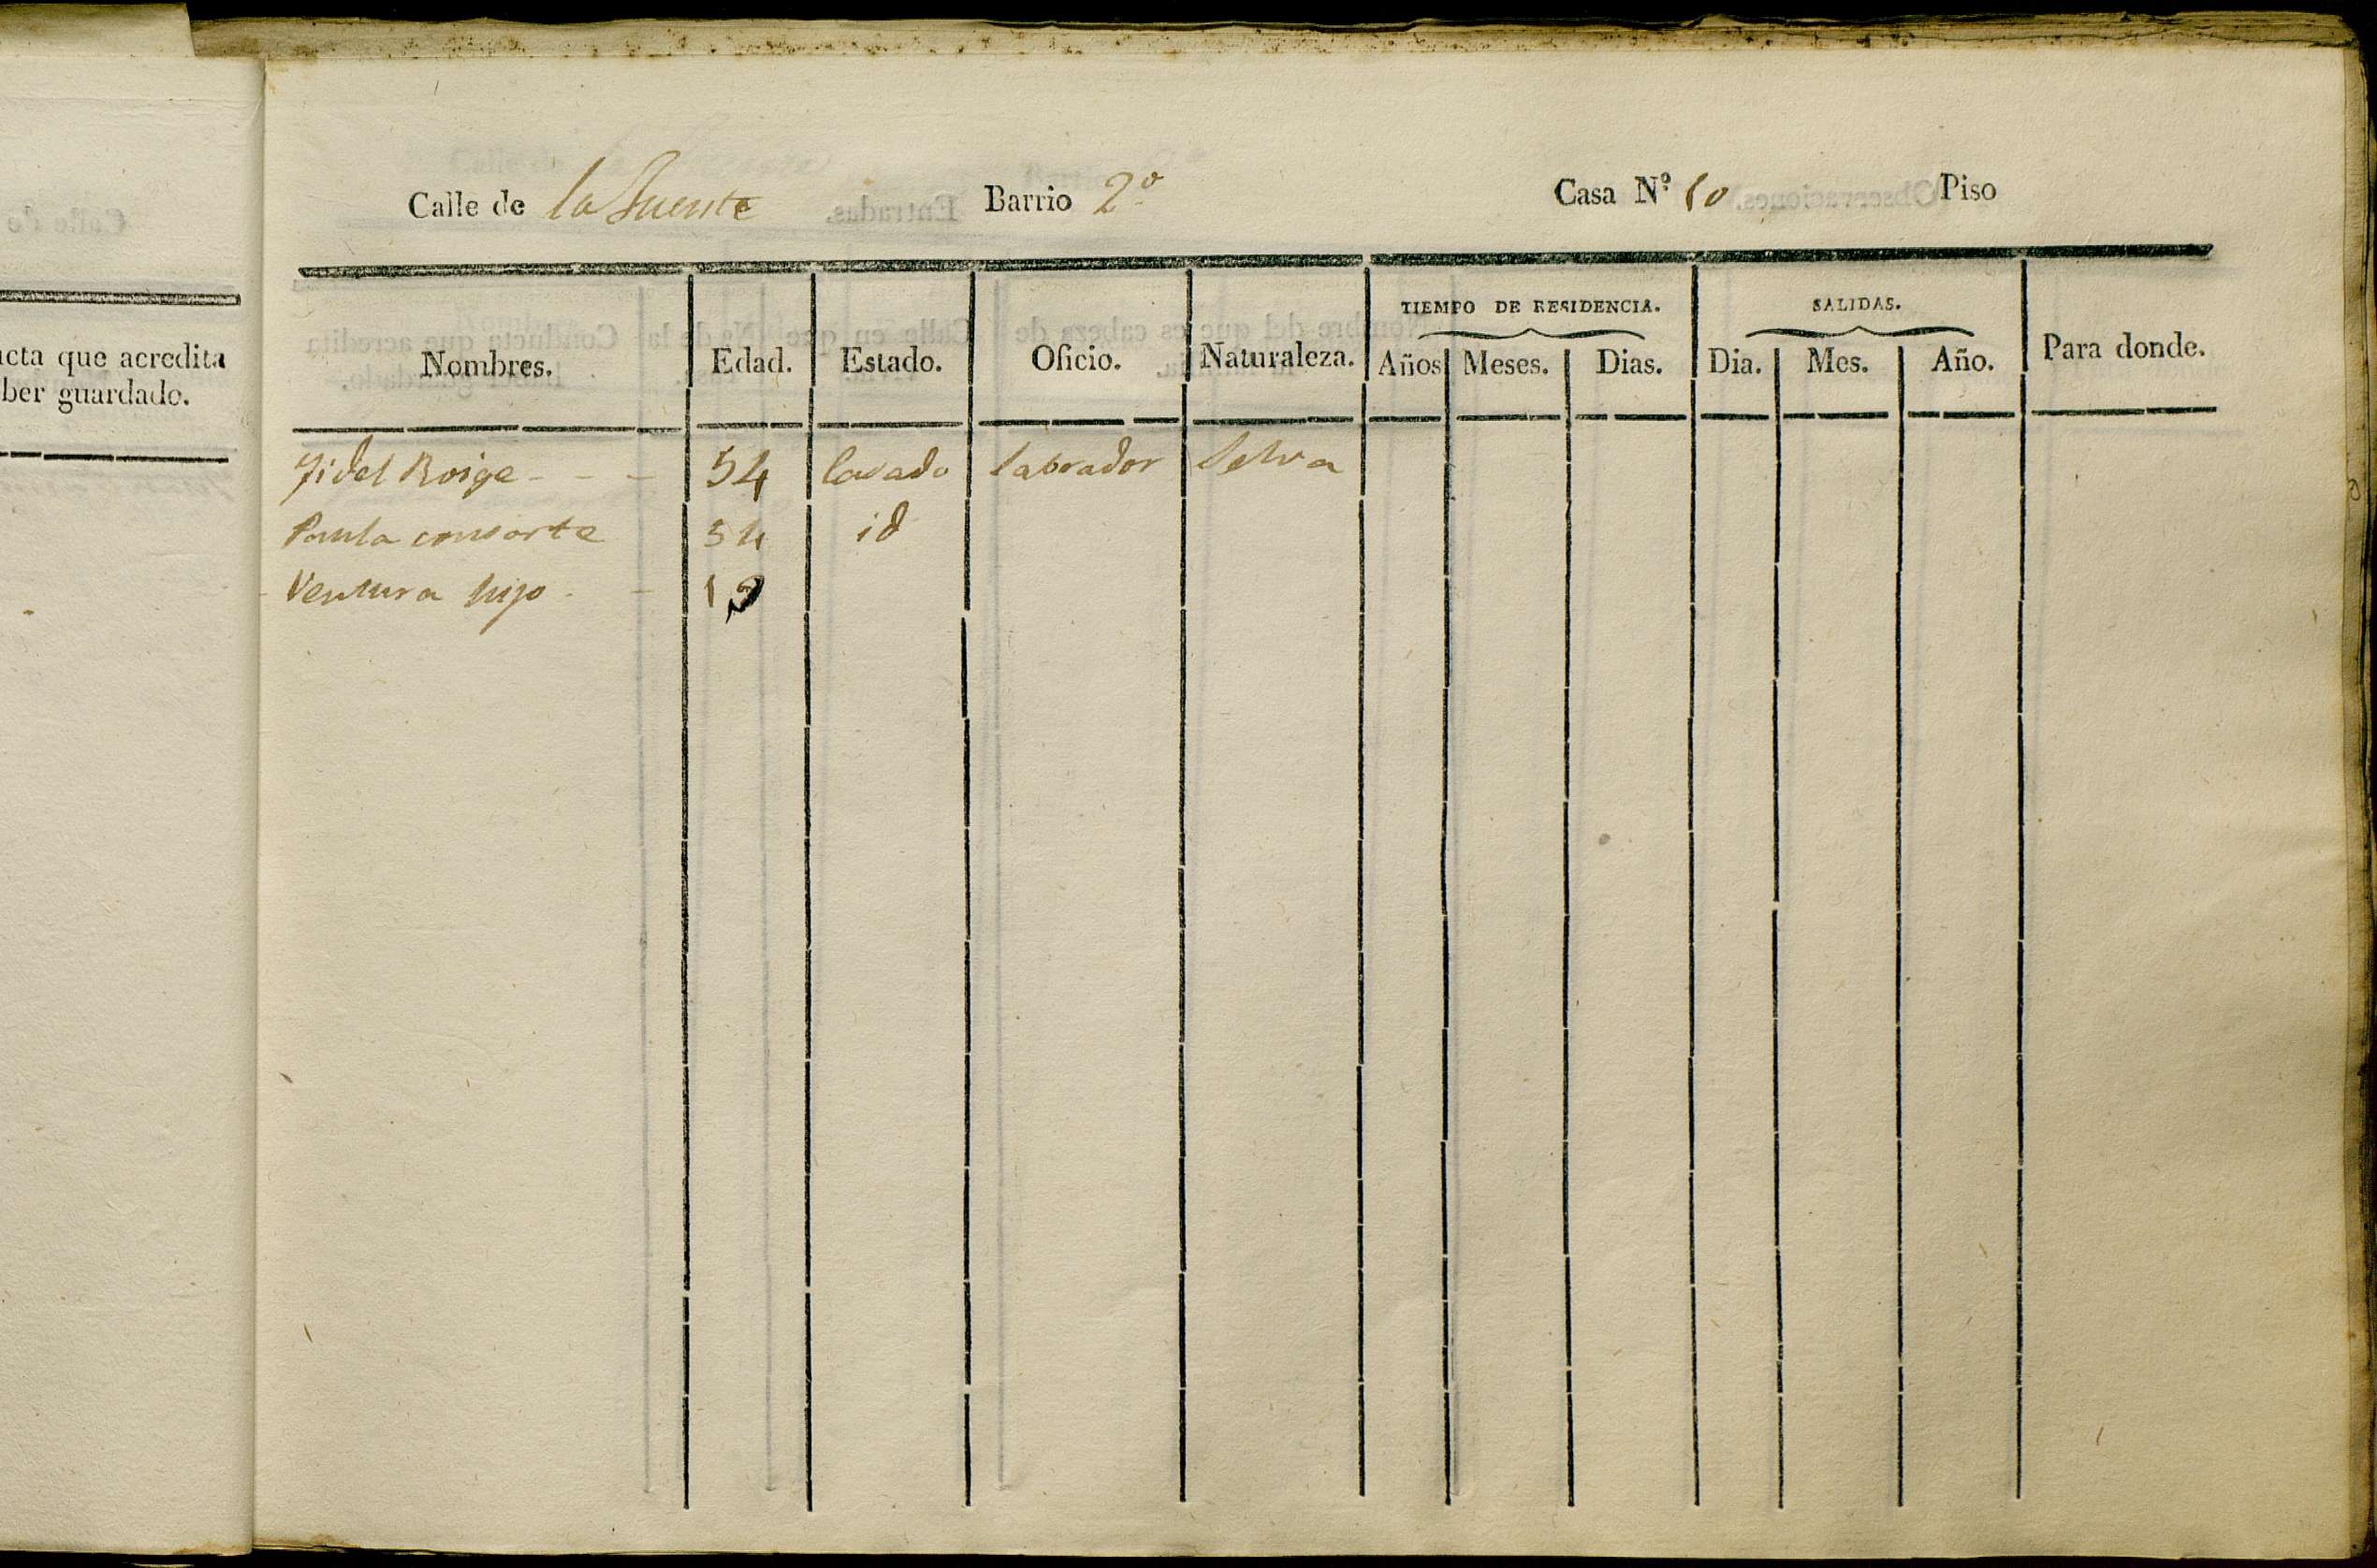 Calle de la Fuente Barrio 2º Casa Nº 10 Piso
TIEMPO DE RESIDENCIA. SALIDAS.
Nombres. Edad. Estado. Oficio. Naturaleza. Años Meses. Dias. Dia. Mes. Año. Para donde.
Fidel Roige - - - 54 Casado Labrador Selva
Paula consorte 54 id
Ventura hijo - -
que acredita
guardado.